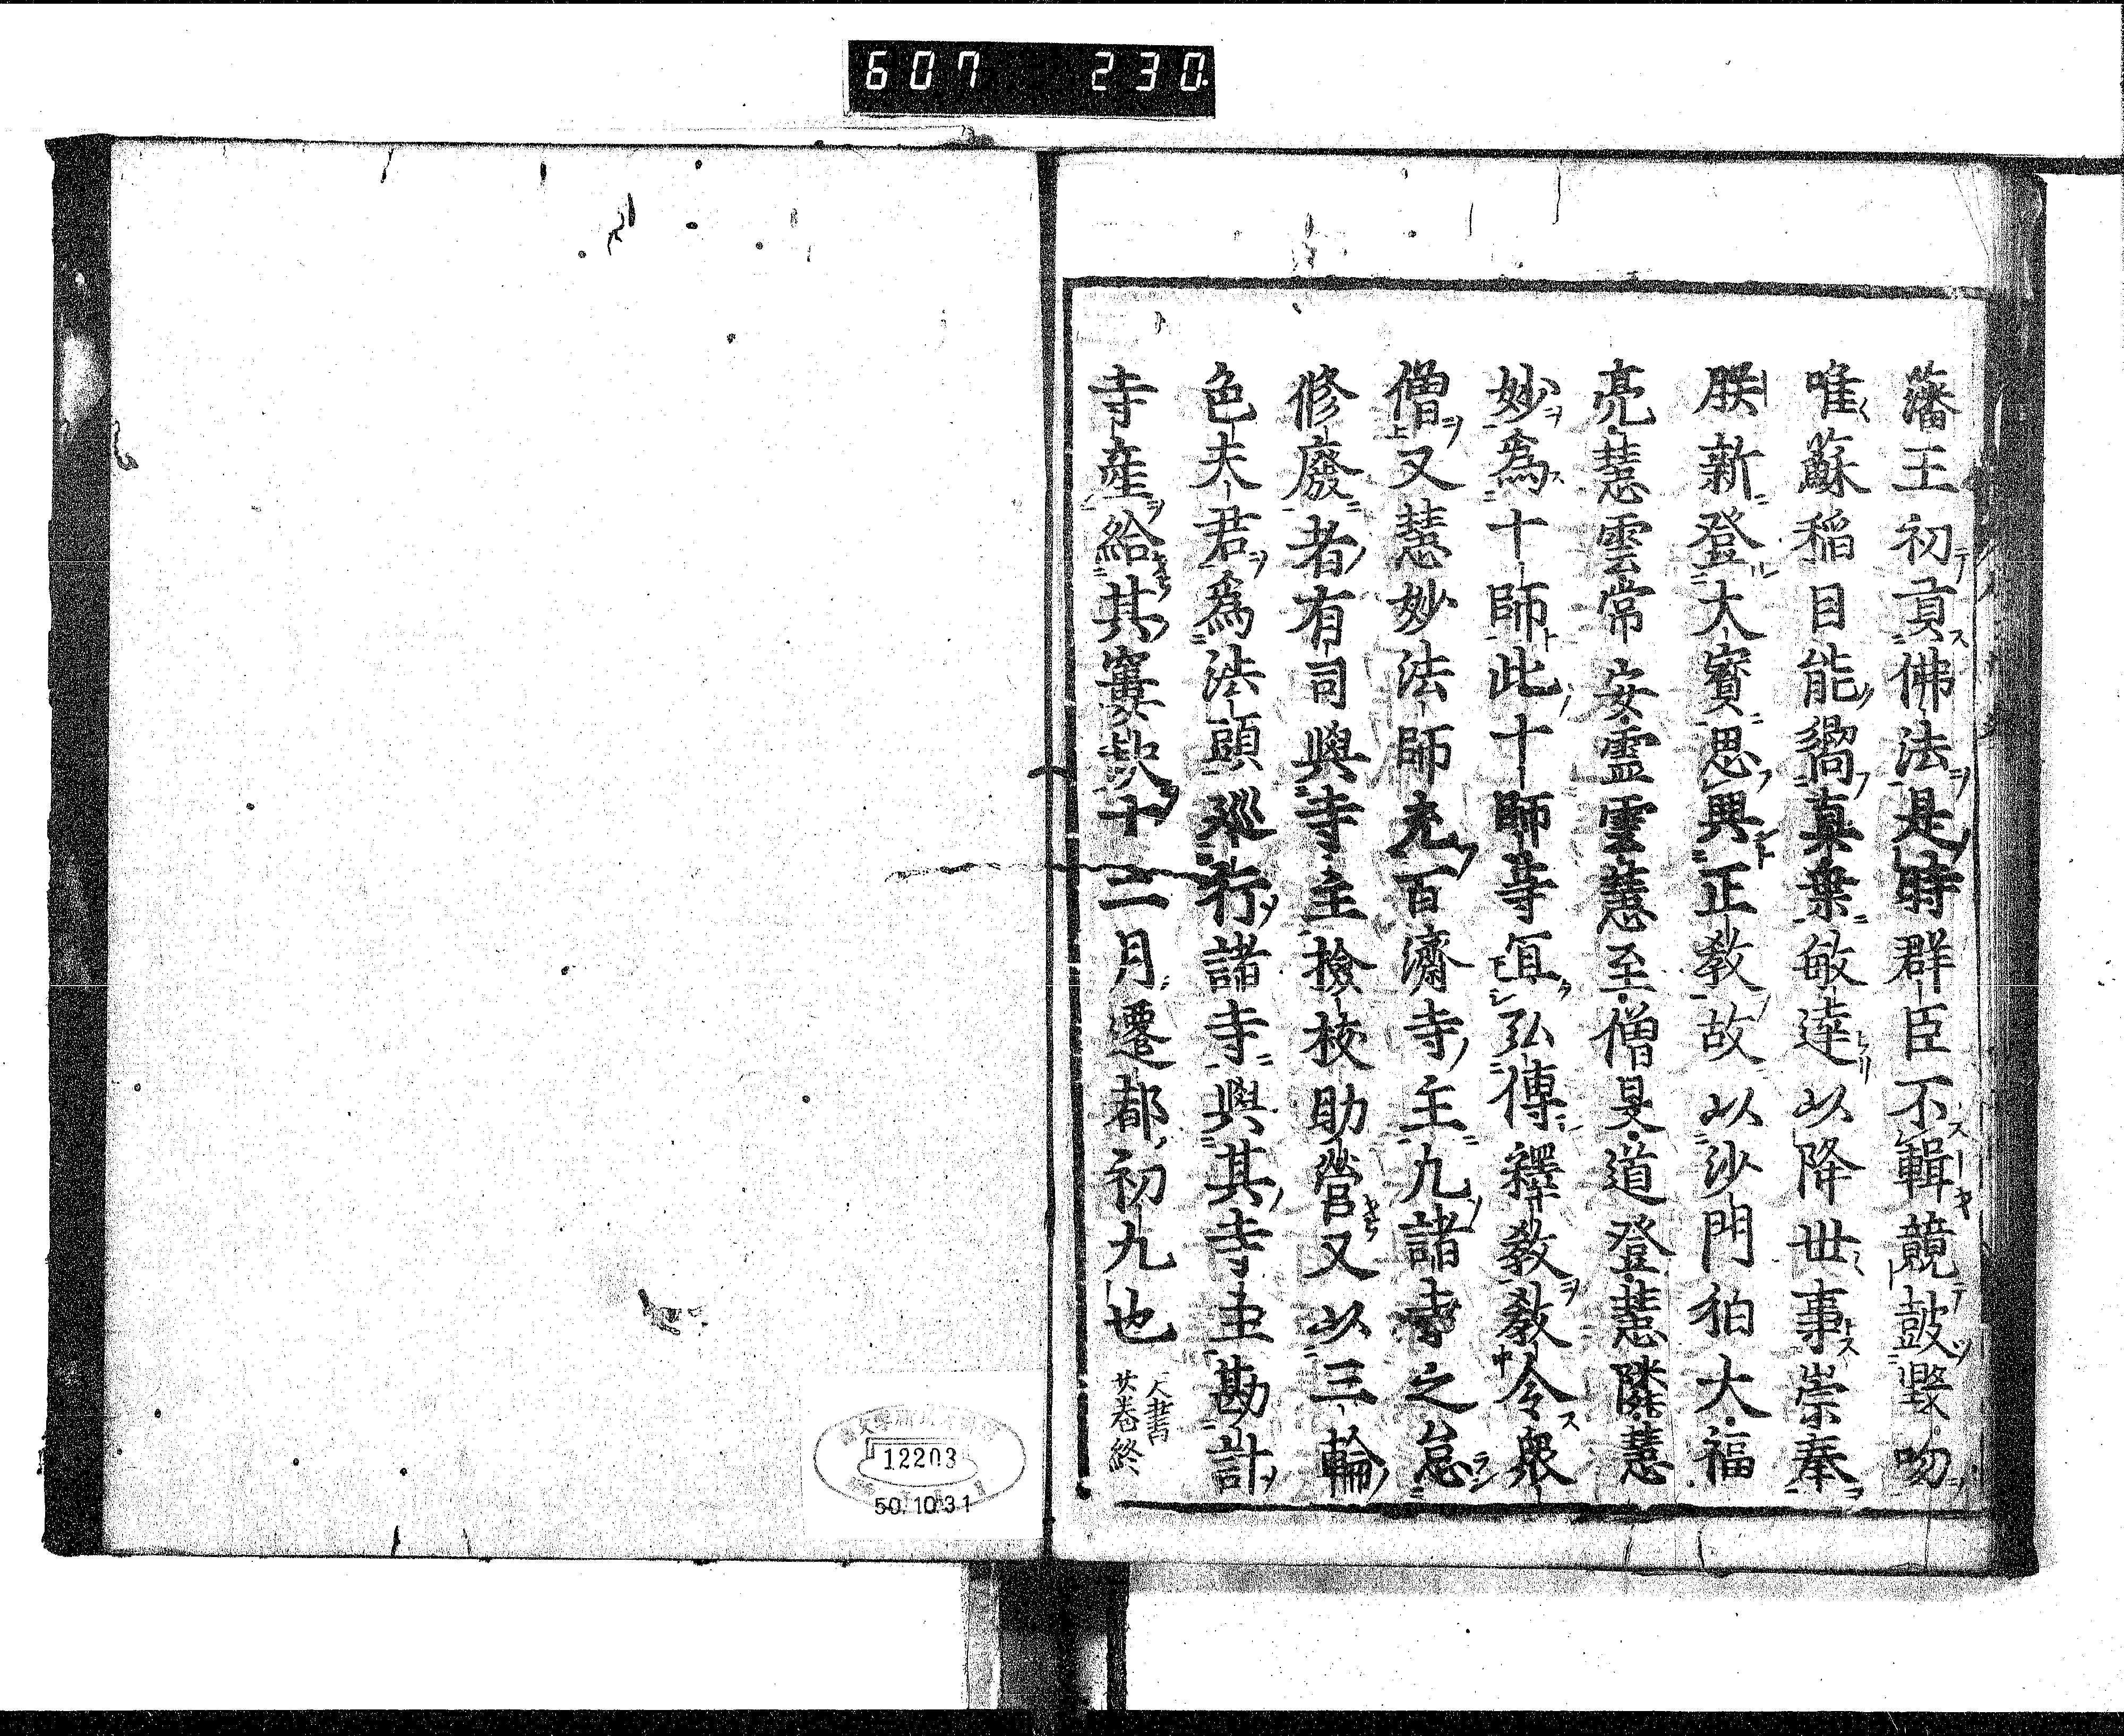 607 230.
藩王初貢佛法是時群臣不輯競鼓毀吻
唯蘇稲目能嚮真乗敏達以降世事崇奉
朕新登大寳思興正教故以沙門狛大福
亮慧雲常安霊雲慧至僧旻道登慧隣慧
妙為十師此十師等宜弘傳釋教教令衆
僧又慧妙法師充百濟寺主凡諸寺之怠
修廢者有司與寺主撿校助営又以三輪
色夫君為法頭巡行諸寺與其寺主勘計
寺産給其窶 十二月遷都初九也
天書
廿巻終
12203
50.10.31